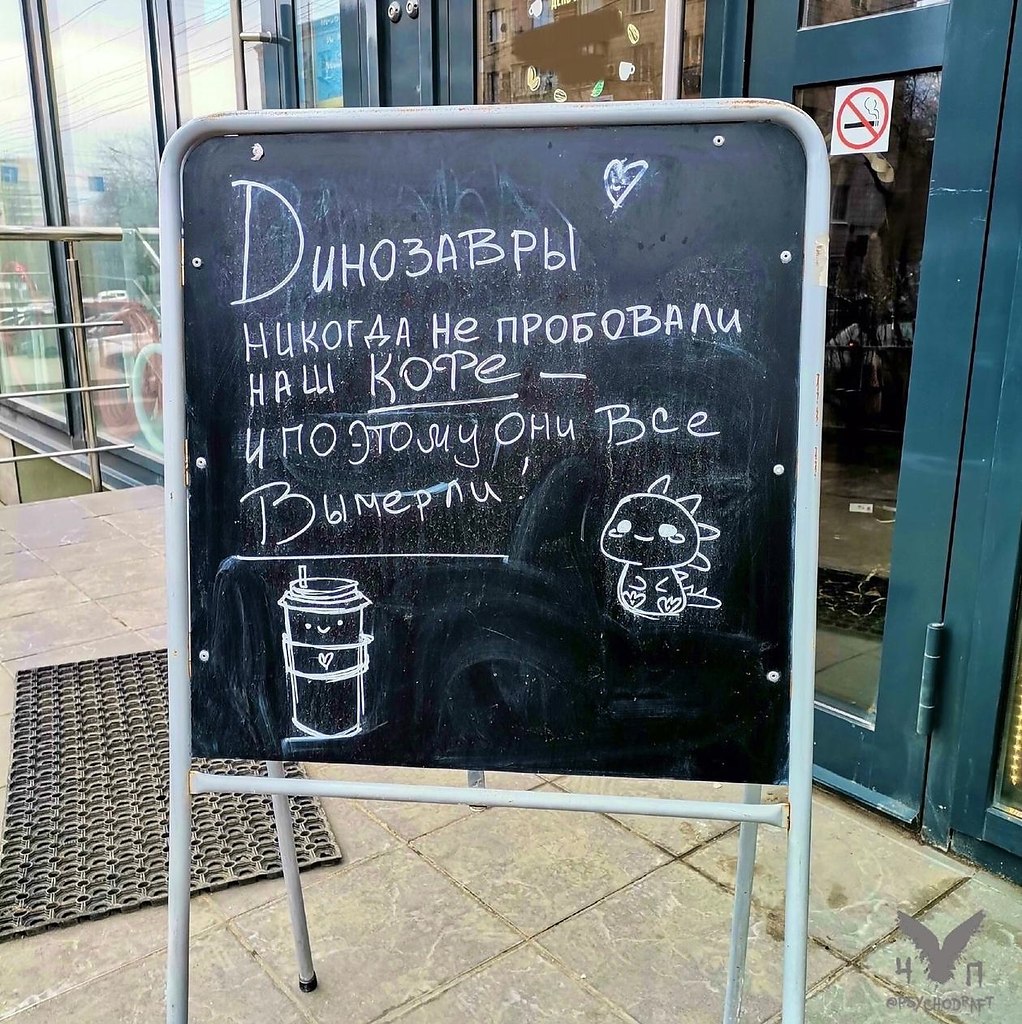 Динозавры
никогда не пробовали
наш кофе —
и поэтому они все
вымерли!
Ч П
@PSYCHODRAFT